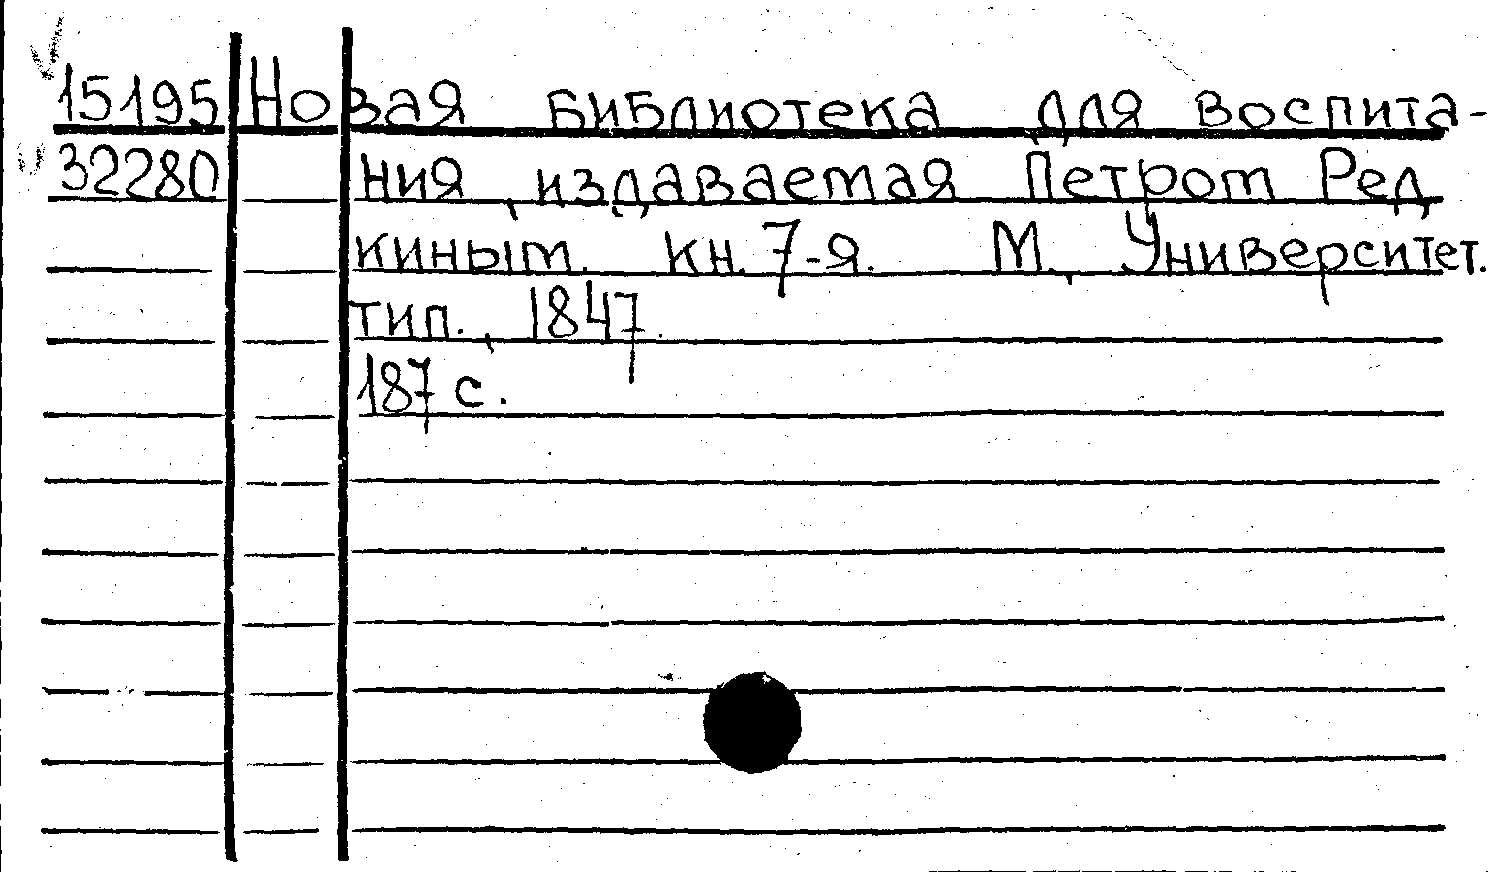 15195 Новая библиотека для воспита-
32280 ния, издаваемая Петром Ред
киным. кн. 7-я. М., Университет.
тип., 1847.
187 с.